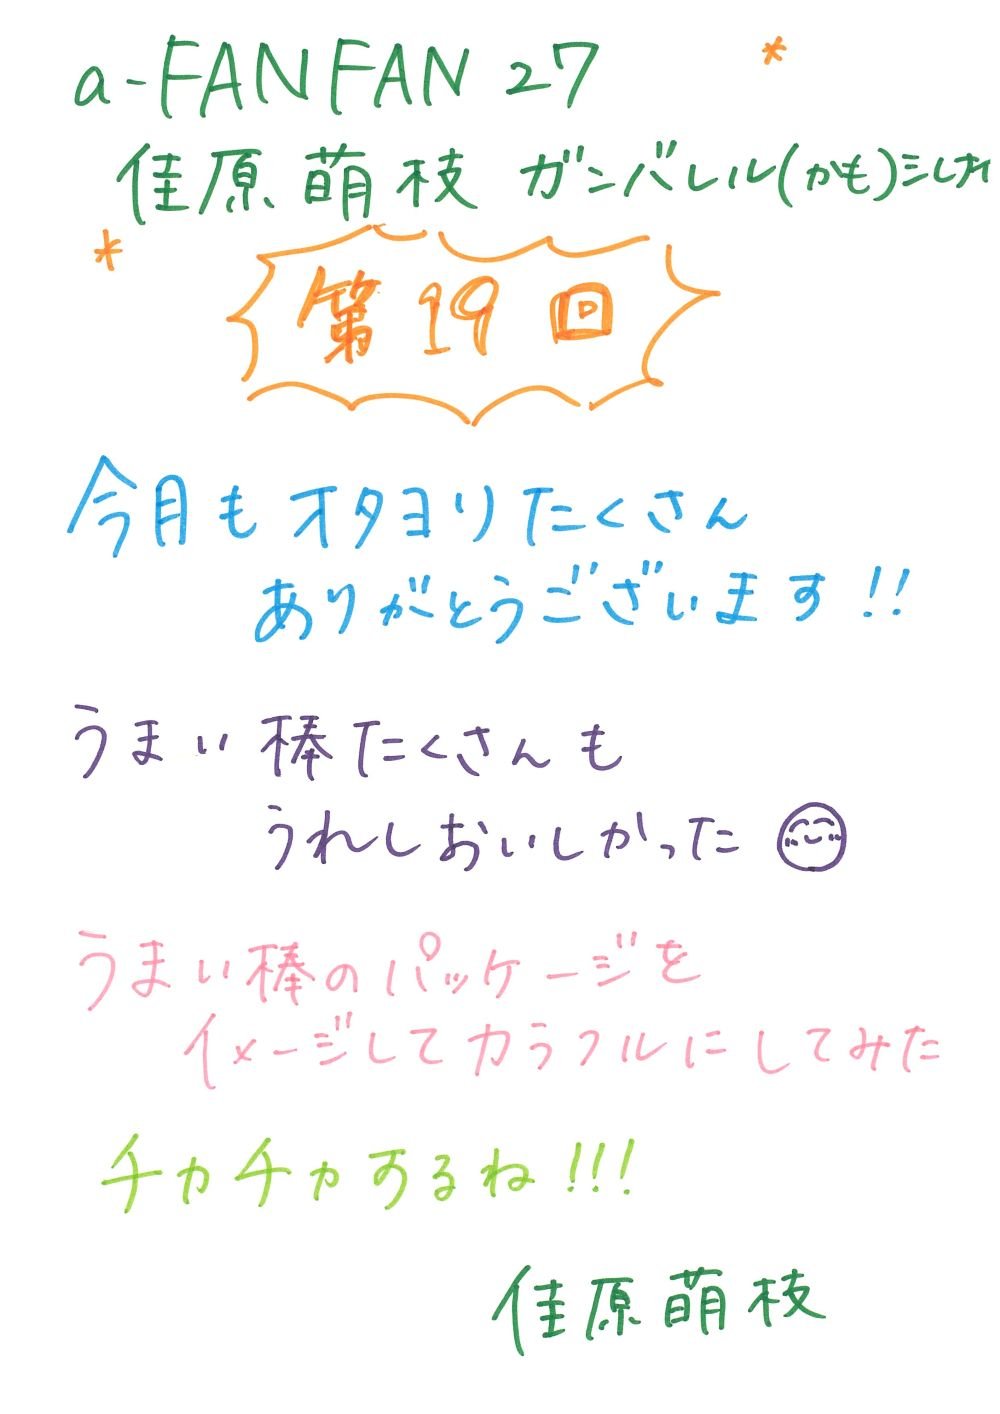 a-FANFAN 27
佳原萌枝 ガンバレル(かも)ミレナイ
第19回
今月もオタヨリたくさん
ありがとうございます!!
うまい棒たくさんも
うれしおいしかった
うまい棒のパッケージを
イメージしてカラフルにしてみた
チカチカするね!!!
佳原萌枝